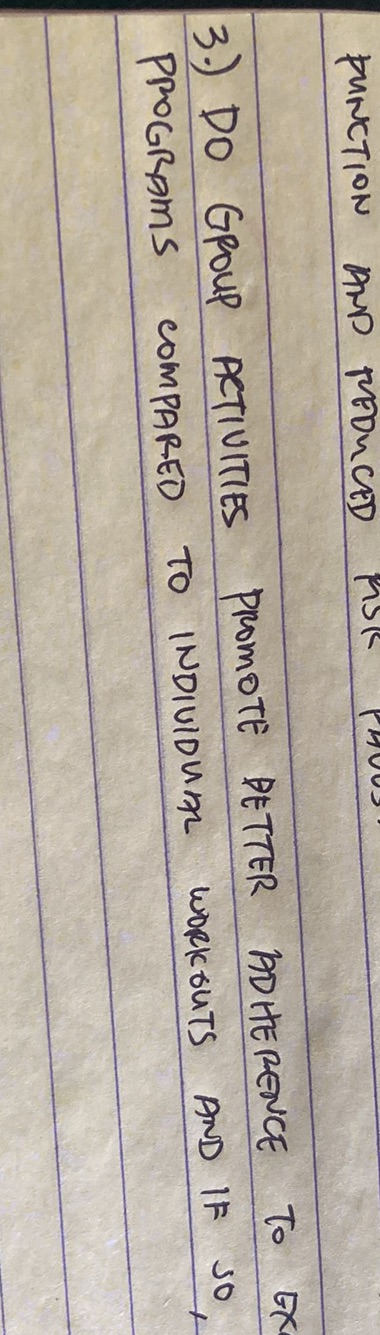 FUNCTION AND REDUCED
3.) DO GROUP ACTIVITIES PROMOTE BETTER ADHERENCE TO EX
PROGRAMS COMPARED TO INDIVIDUAL WORKOUTS AND IF SO,